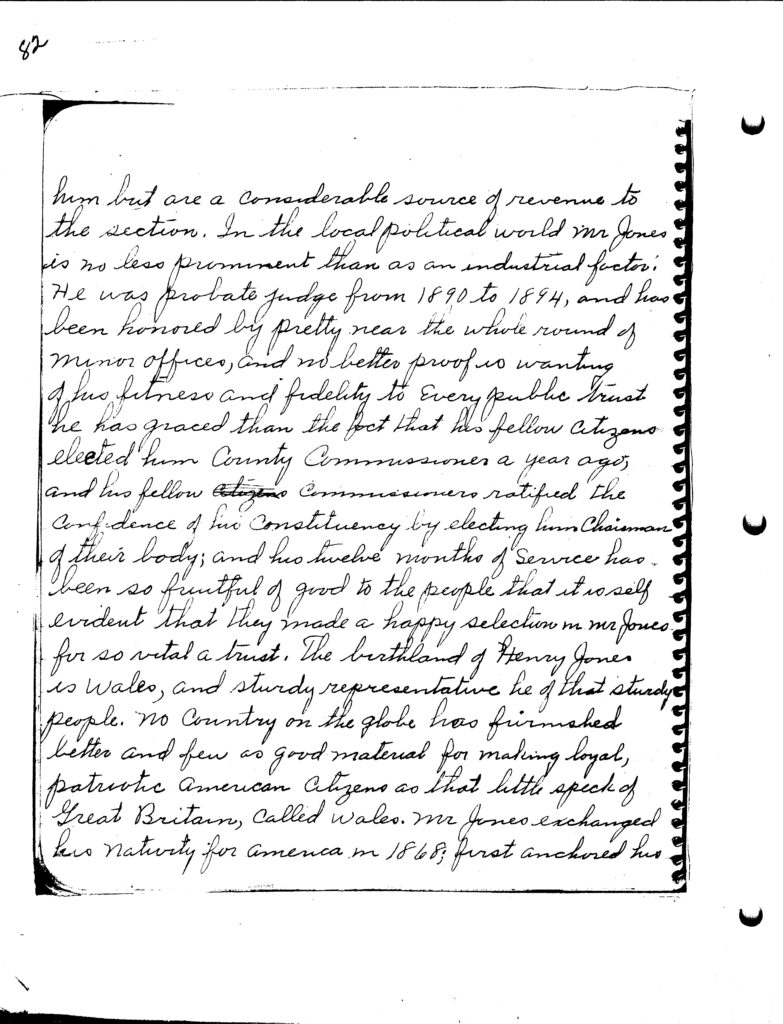 82
him but are a considerable source of revenue to
the section. In the local political world Mr Jones
is no less prominent than as an industrial factor.
He was probate judge from 1890 to 1894, and has
been honored by pretty near the whole round of
minor offices, and no better proof is wanting
of his fitness and fidelity to Every public trust
he has graced than the fact that his fellow Citizens
elected him County Commissioner a year ago,
and his fellow Citizens Commissioners ratified the
Confidence of his Constituency by electing him Chairman
of their body; and his twelve months of Service has
been so fruitful of good to the people that it is self
evident that they made a happy selection in Mr Jones
for so vital a trust. The birthland of Henry Jones
is Wales, and sturdy representative he of that sturdy
people. No Country on the globe has furnished
better and few as good material for making loyal,
patriotic American Citizens as that little speck of
Great Britain, Called Wales. Mr Jones exchanged
his Nativity for America in 1868; first anchored his